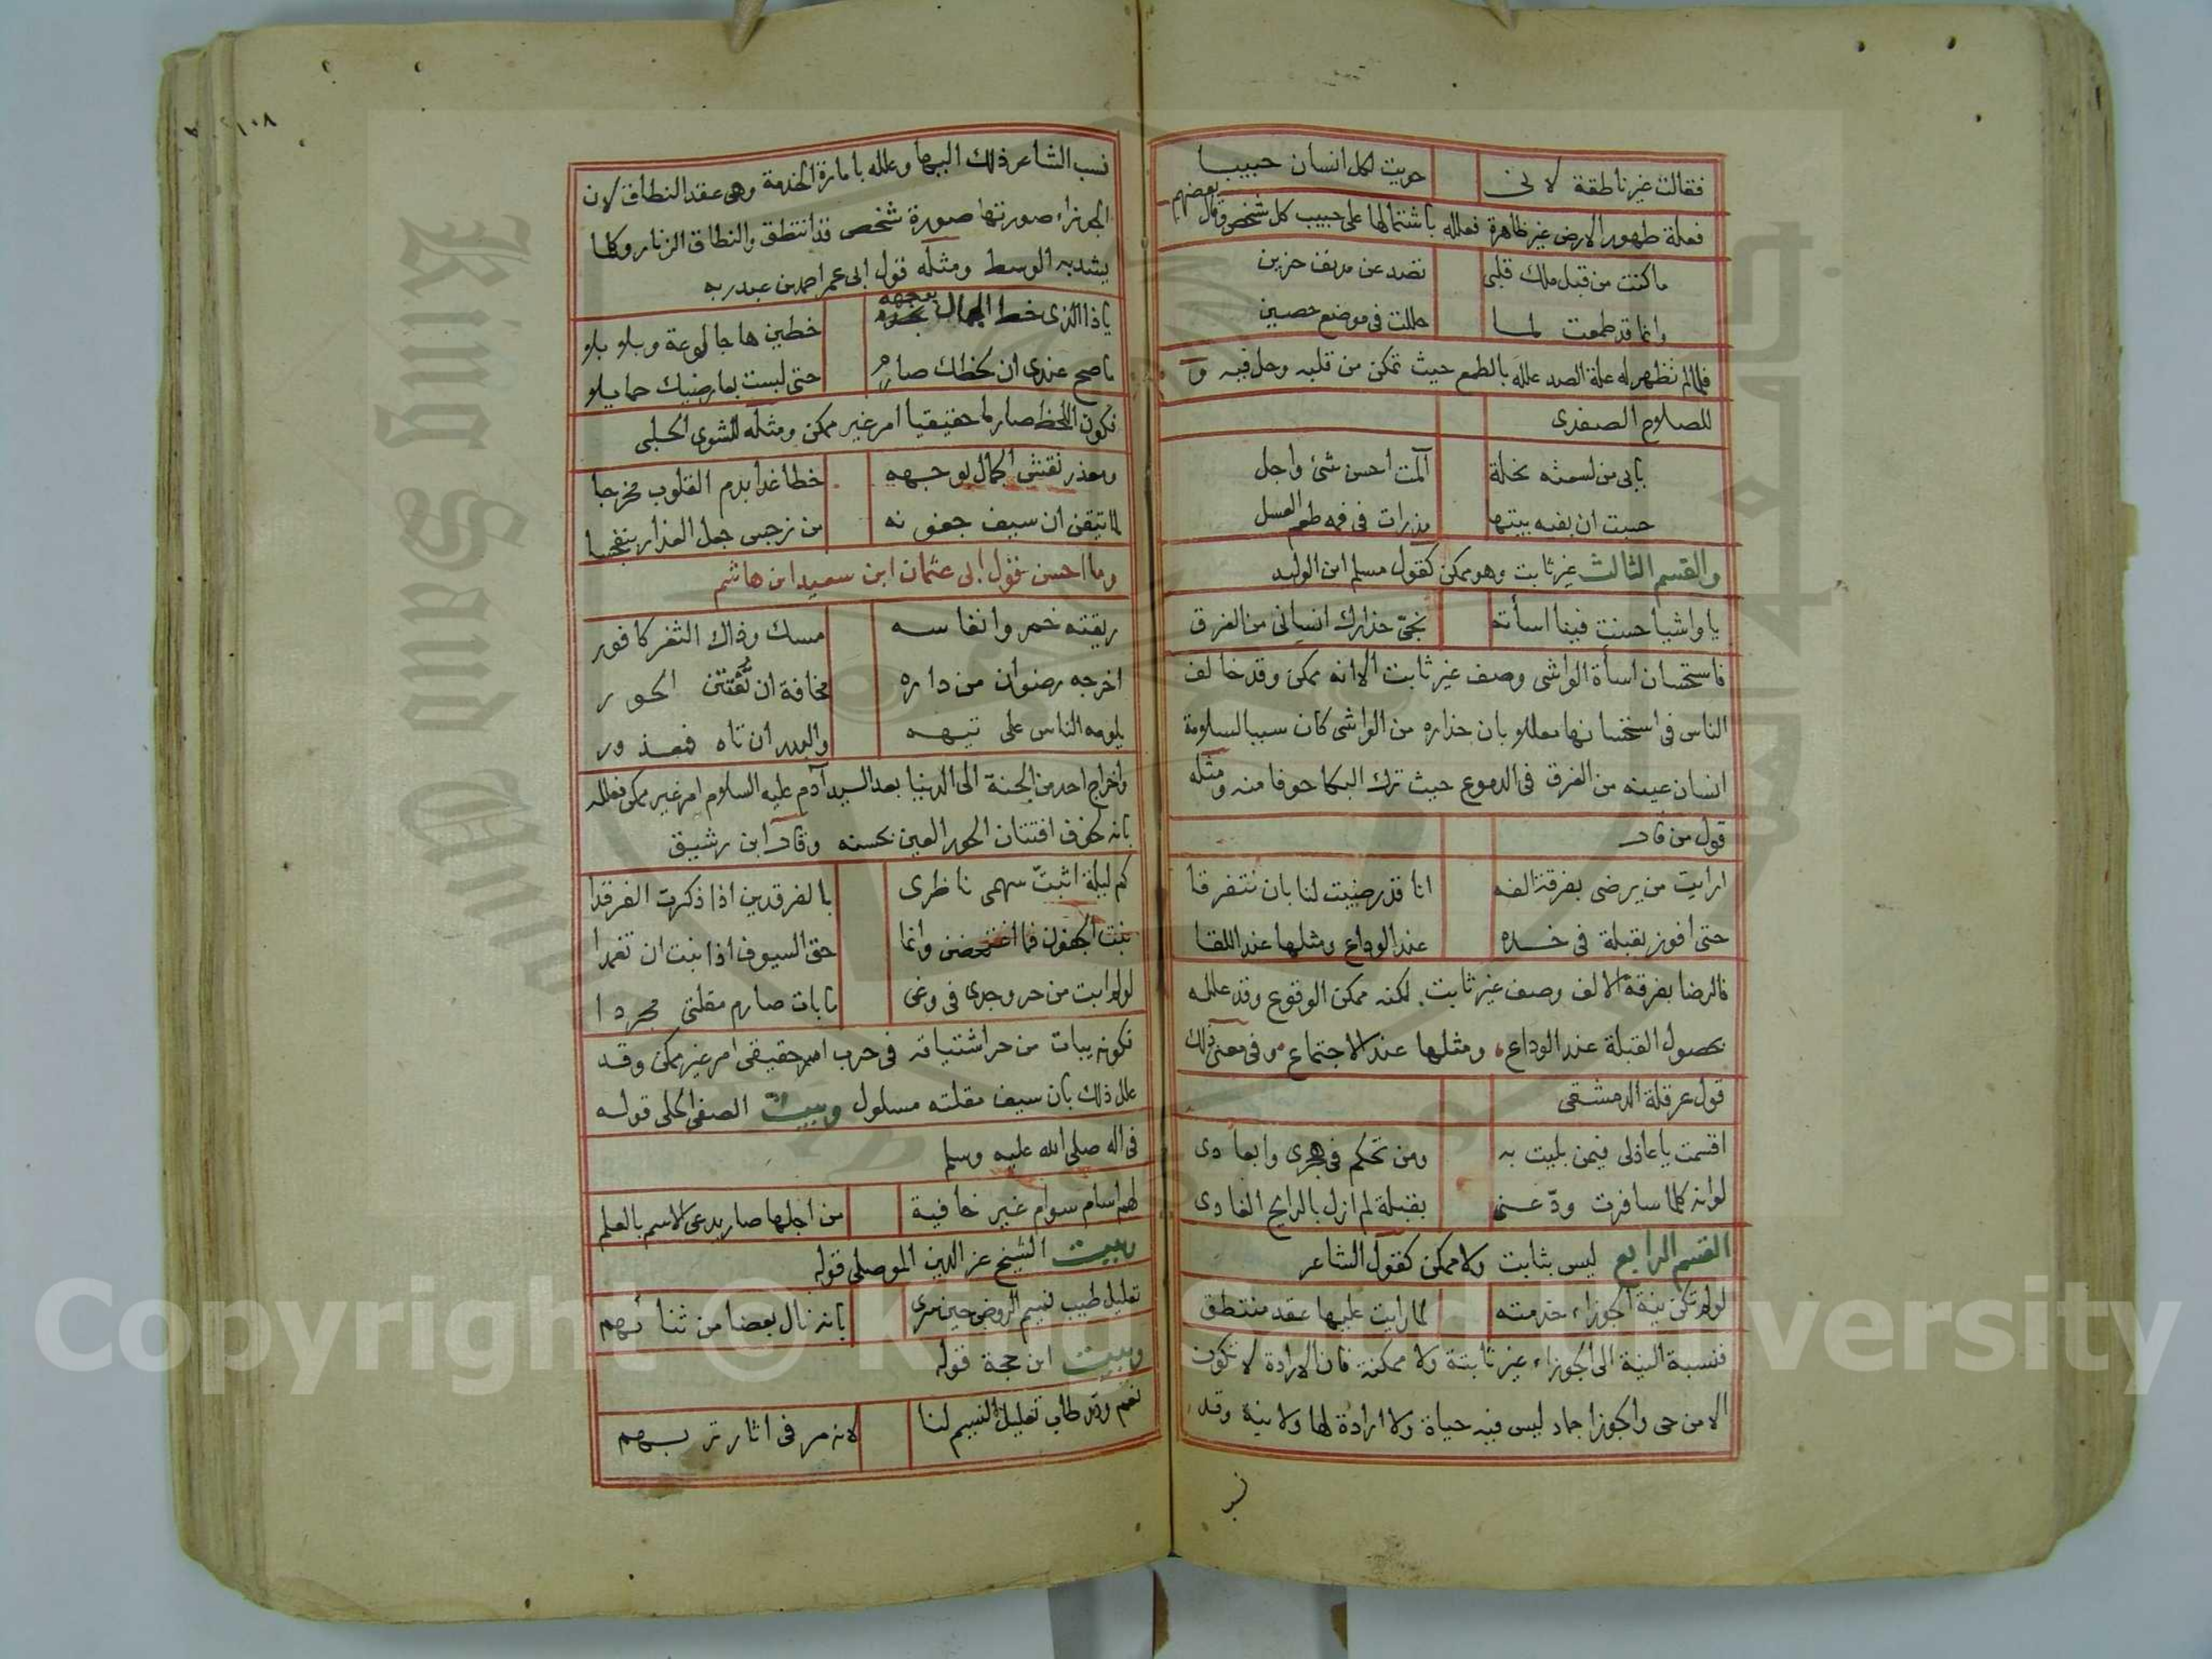 فقالت غير ناطقة لانى حويت لكل انسان حبيبا
فعلة طهور الارض غير ظاهرة فعلله باشتمالها على حبيب كل شخص وقال بعضهم
ما كنت من قبل ملك قلبى تصد عن مدنف حزين
وانما قد طمعت لما حللت فى موضع حصين
فلما لم تظهر له علة الصد علله بالطمع حيث تمكن من قلبه وحل فيه و
للصلاح الصفدى
بابى من لسعته نحلة آلمت احسن شئ واجل
حسبت ان بفيه بيتها مذ رات فى فمه طعم العسل
والقسم الثالث غير ثابت وهو ممكن كقول مسلم ابن الوليد
يا واشيا حسنت فينا اسأته نجى حذارك انسانى من الغرق
فاستحسان اسأة الواشى وصف غير ثابت الا انه ممكن وقد خالف
الناس فى استحسانها معللا بان حذاره من الواشى كان سببا لسلامة
انسان عينه من الغرق فى الدموع حيث ترك البكا خوفا منه ومثله
قول من قال
ارايت من يرضى بفرقة الفه انا قد رضيت لنا بان نتفرقا
حتى افوز بقبلة فى خده عند الوداع ومثلها عند اللقا
فالرضا بفرقة الالف وصف غير ثابت لكنه ممكن الوقوع وقد علله
بحصول القبلة عند الوداع ومثلها عند الاجتماع وفى معنى ذلك
قول عرقلة الدمشقى
اقسمت يا عاذلى فيمن بليت به ومن تحكم فى هجرى وابعادى
لو انه كلما سافرت ودعنى بقبلة لم ازل بالرايح الغادى
القسم الرابع ليس بثابت ولا ممكن كقول الشاعر
لو لم تكن نية الجوزاء خدمته لما رايت عليها عقد منتطق
فنسبة النية الى الجوزاء غير ثابتة ولا ممكنة فان الارادة لا تكون
الا من حى والجوزا جماد ليس فيه حياة ولا ارادة لها ولا نية وقد
نسب
١٠٨
نسب الشاعر ذلك اليها وعلله بامارة الخدمة وهى عقد النطاق لان
الجوزاء صورتها صورة شخص قد انتطق والنطاق الزنار وكلما
يشد به الوسط ومثله قول ابى عمر احمد بن عبد ربه
يا ذا الذى خط الجمال بوجهه خطين هاجا لوعة وبلابلا
ما صح عندى ان لحظك صارم حتى لبست بعارضيك حمايلا
فكون اللحظ صارما حقيقيا امر غير ممكن ومثله للشوى الحلبى
ومعذر نقش الجمال بوجهه خطا غدا بدم القلوب مضرجا
لما تيقن ان سيف جفونه من نرجس جعل العذار بنفسجا
وما احسن قول ابى عثمان ابن سعيد ابن هاشم
ريقته خمر وانفاسه مسك وذاك الثغر كافور
اخرجه رضوان من داره مخافة ان تفتتن الحور
يلومه الناس على تيهه والبدر ان تاه فمعذور
واخراج احد من الجنة الى الدنيا بعد السيد آدم عليه السلام امر غير ممكن فعلله
بانه لخوف افتتان الحور العين بحسنه وقال ابن رشيق
كم ليلة اثبت سهمى ناظرى بالفرقدين اذا ذكرت الفرقدا
نبت الجفون فما اغتمضن وانما حق السيوف اذا نبت ان تغمدا
لو لم ابت من حر وجدى فى وغى ما بات صارم مقلتى مجردا
فكونه يبات من حر اشتياقه فى حرب امر حقيقى امر غير ممكن وقد
علل ذلك بان سيف مقلته مسلول وبيت الصفى الحلى قوله
فى اله صلى الله عليه وسلم
لهم اسام سوام غير خافية من اجلها صار يدعى الاسم بالعلم
وبيت الشيخ عز الدين الموصلى قوله
تعليل طيب نسيم الروض حين سرى بانه نال بعضا من ثنائهم
وبيت ابن حجة قوله
نعم وقد طاب تعليل النسيم لنا لانه مر فى اثار تربهم
Copyright © King Saud University
King Saud University